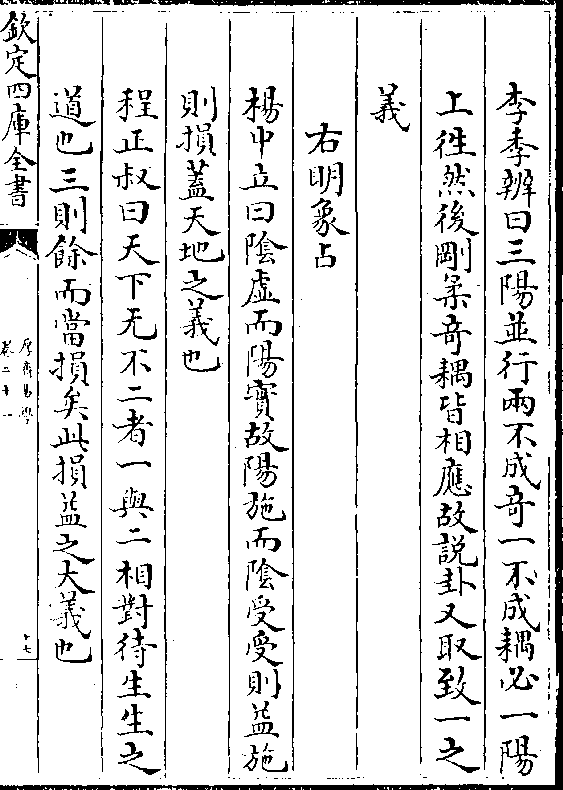 李季辨曰三陽並行兩不成竒一不成耦必一陽
上徃然後剛柔竒耦皆相應故説卦又取致一之
義
右明象占
楊中立曰陰虛而陽實故陽施而陰受受則益施
則損蓋天地之義也
程正叔曰天下无不二者一與二相對待生生之
道也三則餘而當損矣此損益之大義也
欽定四庫全書
厚齋易學
卷二十一
十七